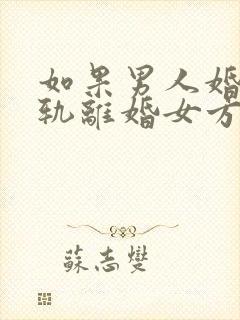 如果男人婚
轨離婚女方
蘇志燮